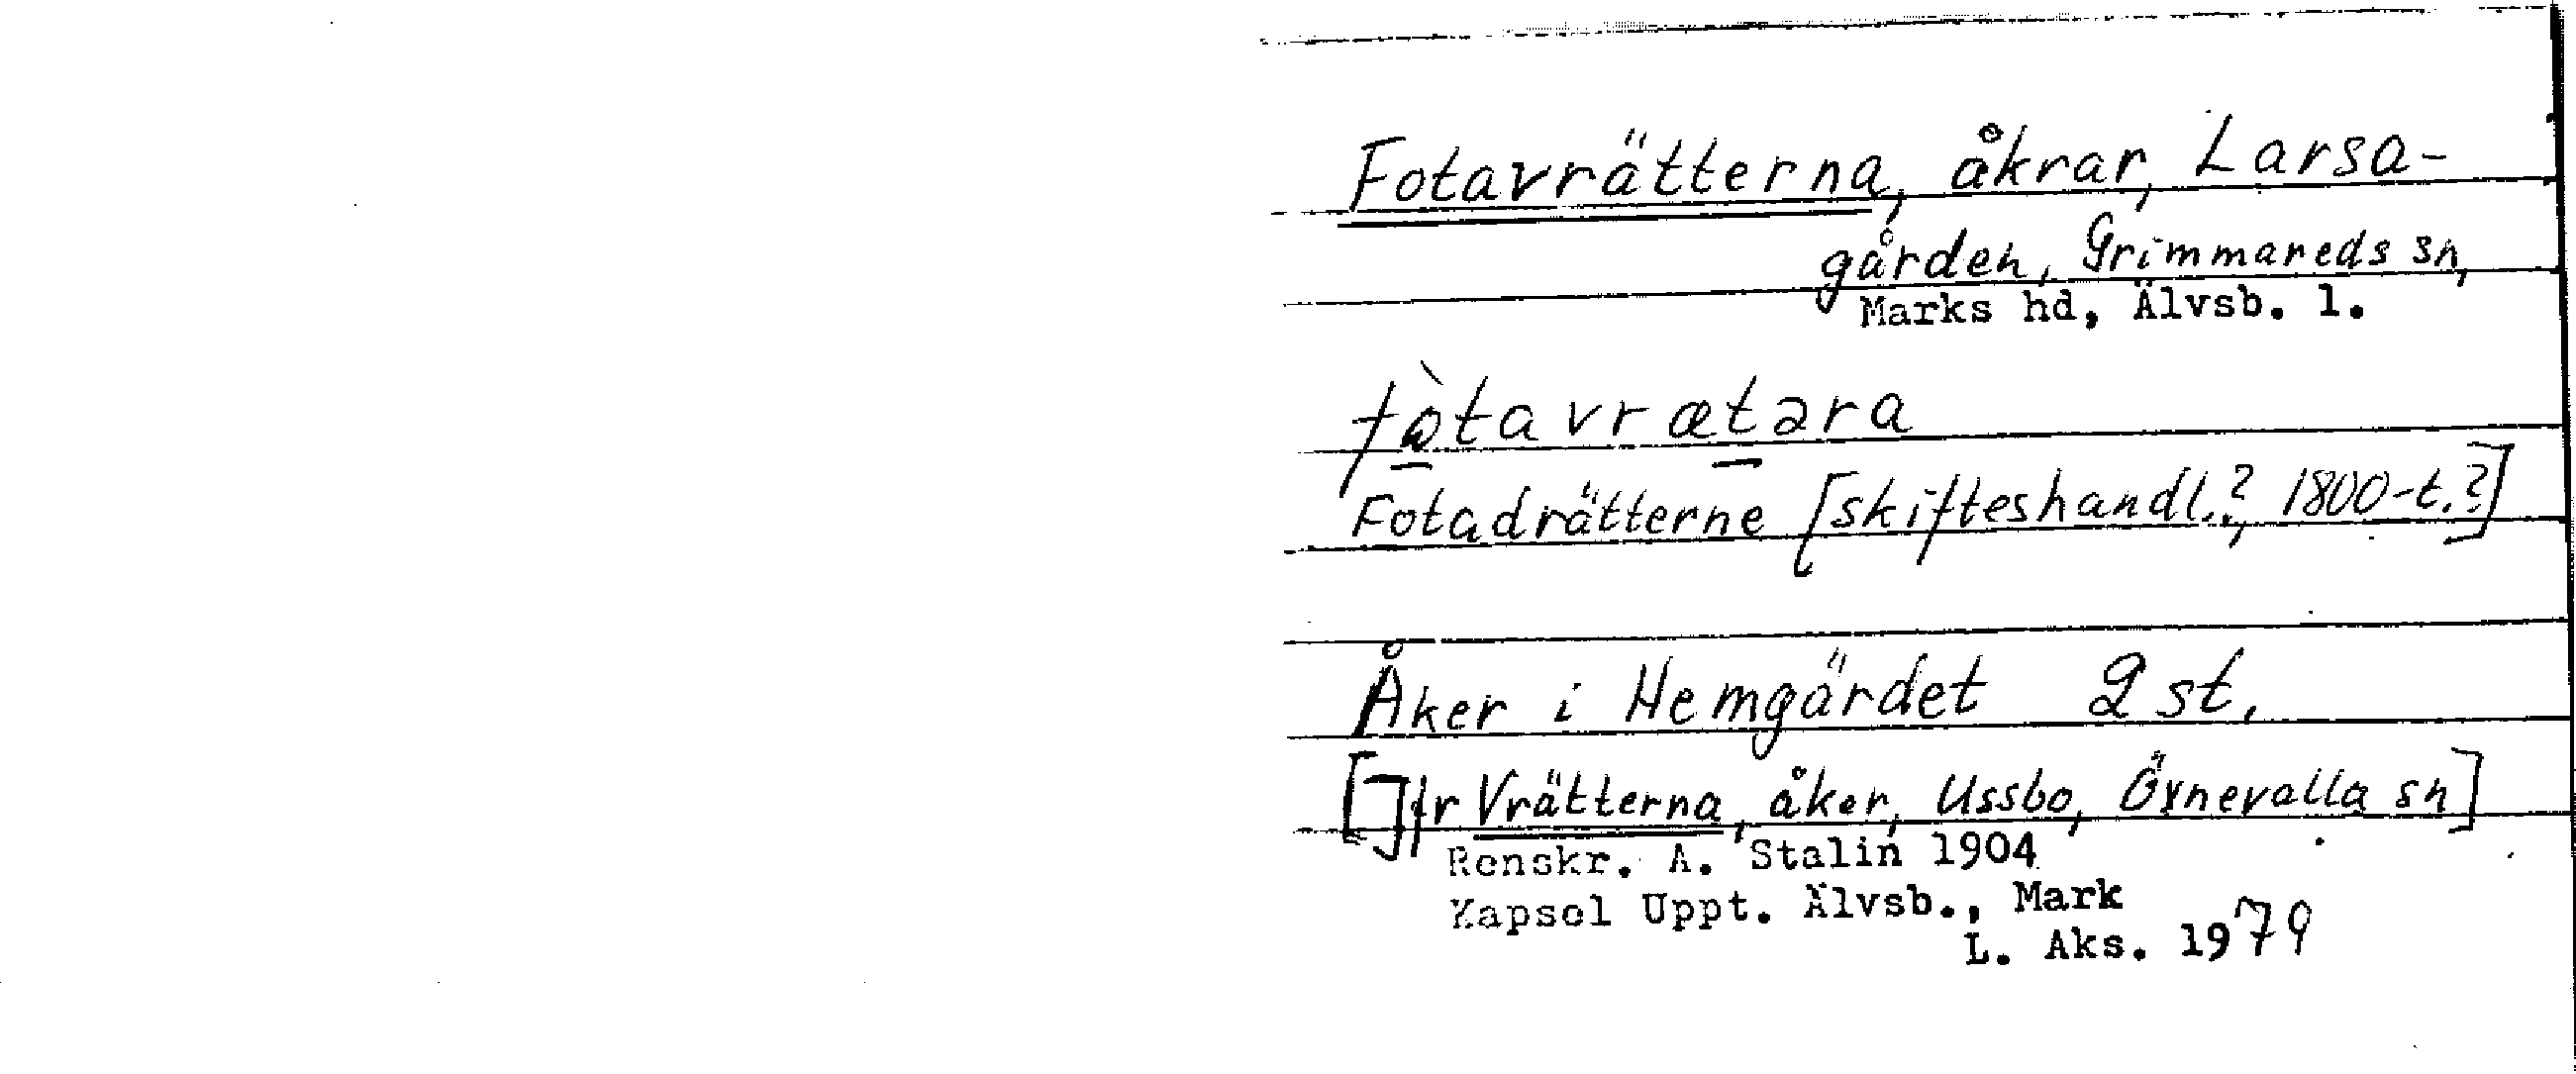 Fotavrätterna, åkrar, Larsa-
gården, Grimmareds sn,
Marks hd, Älvsb. l.
fòtavrætəra
Fotadrätterne [skifteshandl.?, 1800-t.?]
Åker i Hemgärdet 2 st.
[Jfr Vrätterna, åker, Ussbo, Öxnevalla sn]
Renskr. A. Stalin 1904
Kapsel Uppt. Älvsb., Mark
L. Aks. 1979